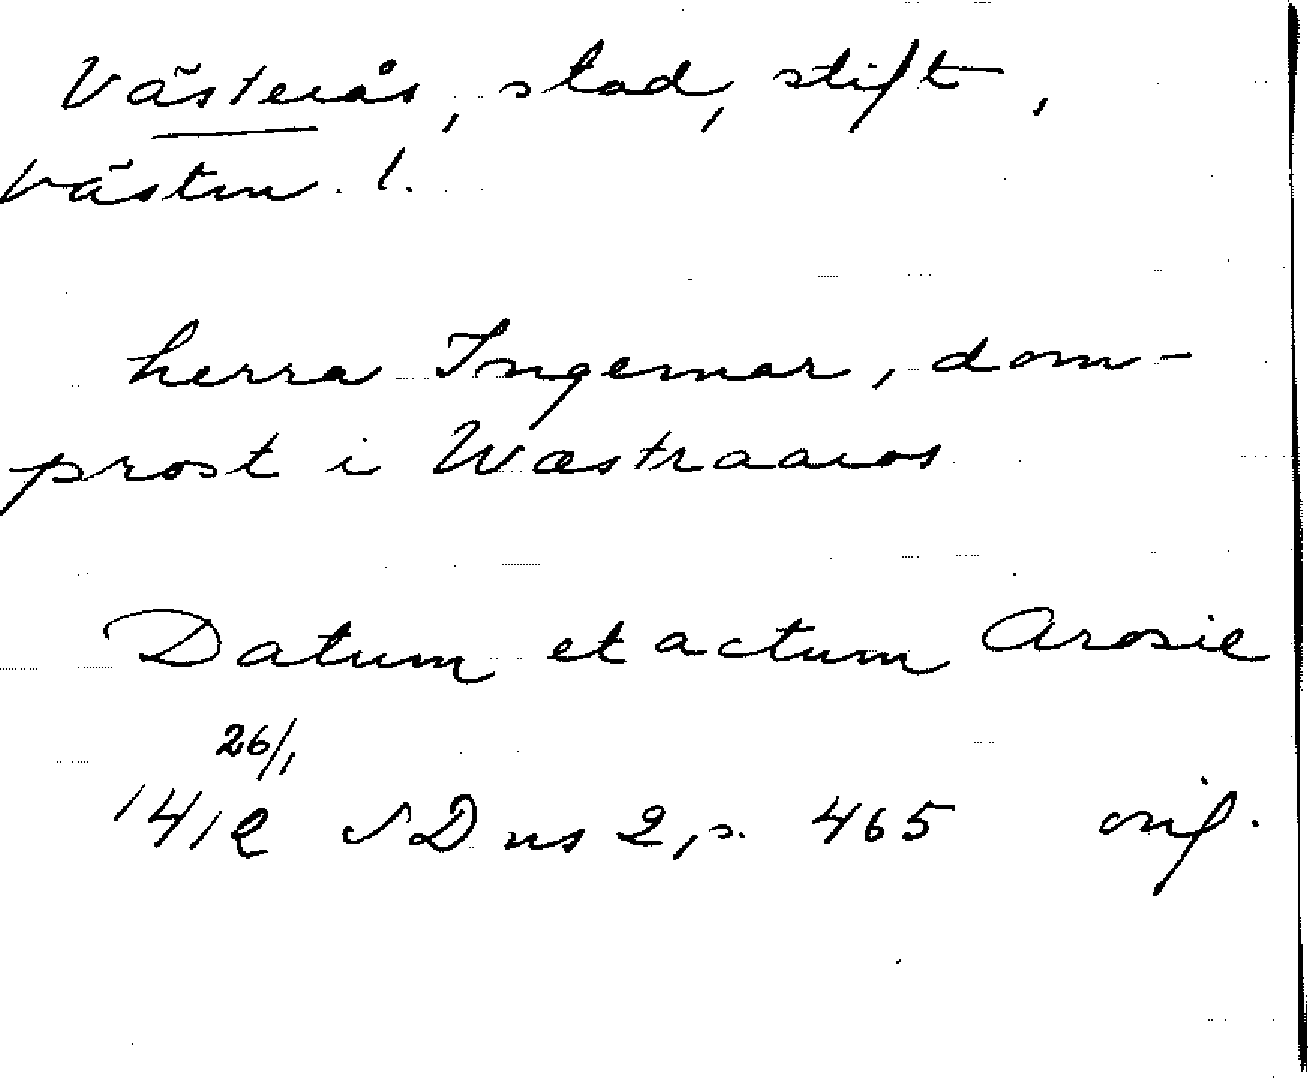 Västerås, stad, stift,
Västm. l.
herra Ingemar, dom-
prost i Wæstraaros
Datum et actum Arosie
26/1
1412 SD ns 2, s. 465 orig.